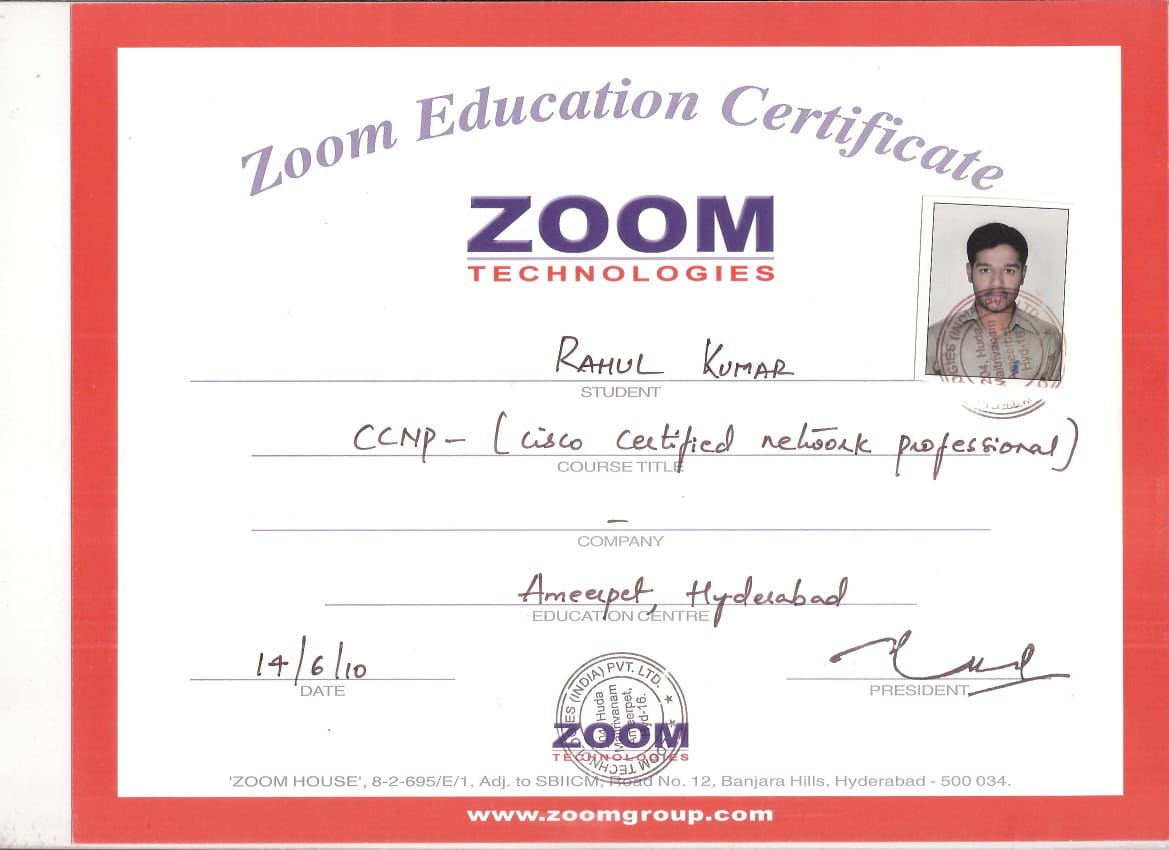 Zoom Education Certificate
ZOOM
TECHNOLOGIES
RAHUL KUMAR
STUDENT
CCNP - (cisco certified network professional)
COURSE TITLE
–
COMPANY
Ameerpet, Hyderabad
EDUCATION CENTRE
14/6/10
DATE
PRESIDENT
ZOOM TECHNOLOGIES (INDIA) PVT. LTD.
204, Huda
Maitrivanam
Ameerpet,
Hyd-16.
ZOOM
TECHNOLOGIES
'ZOOM HOUSE', 8-2-695/E/1, Adj. to SBIICM, Road No. 12, Banjara Hills, Hyderabad - 500 034.
www.zoomgroup.com